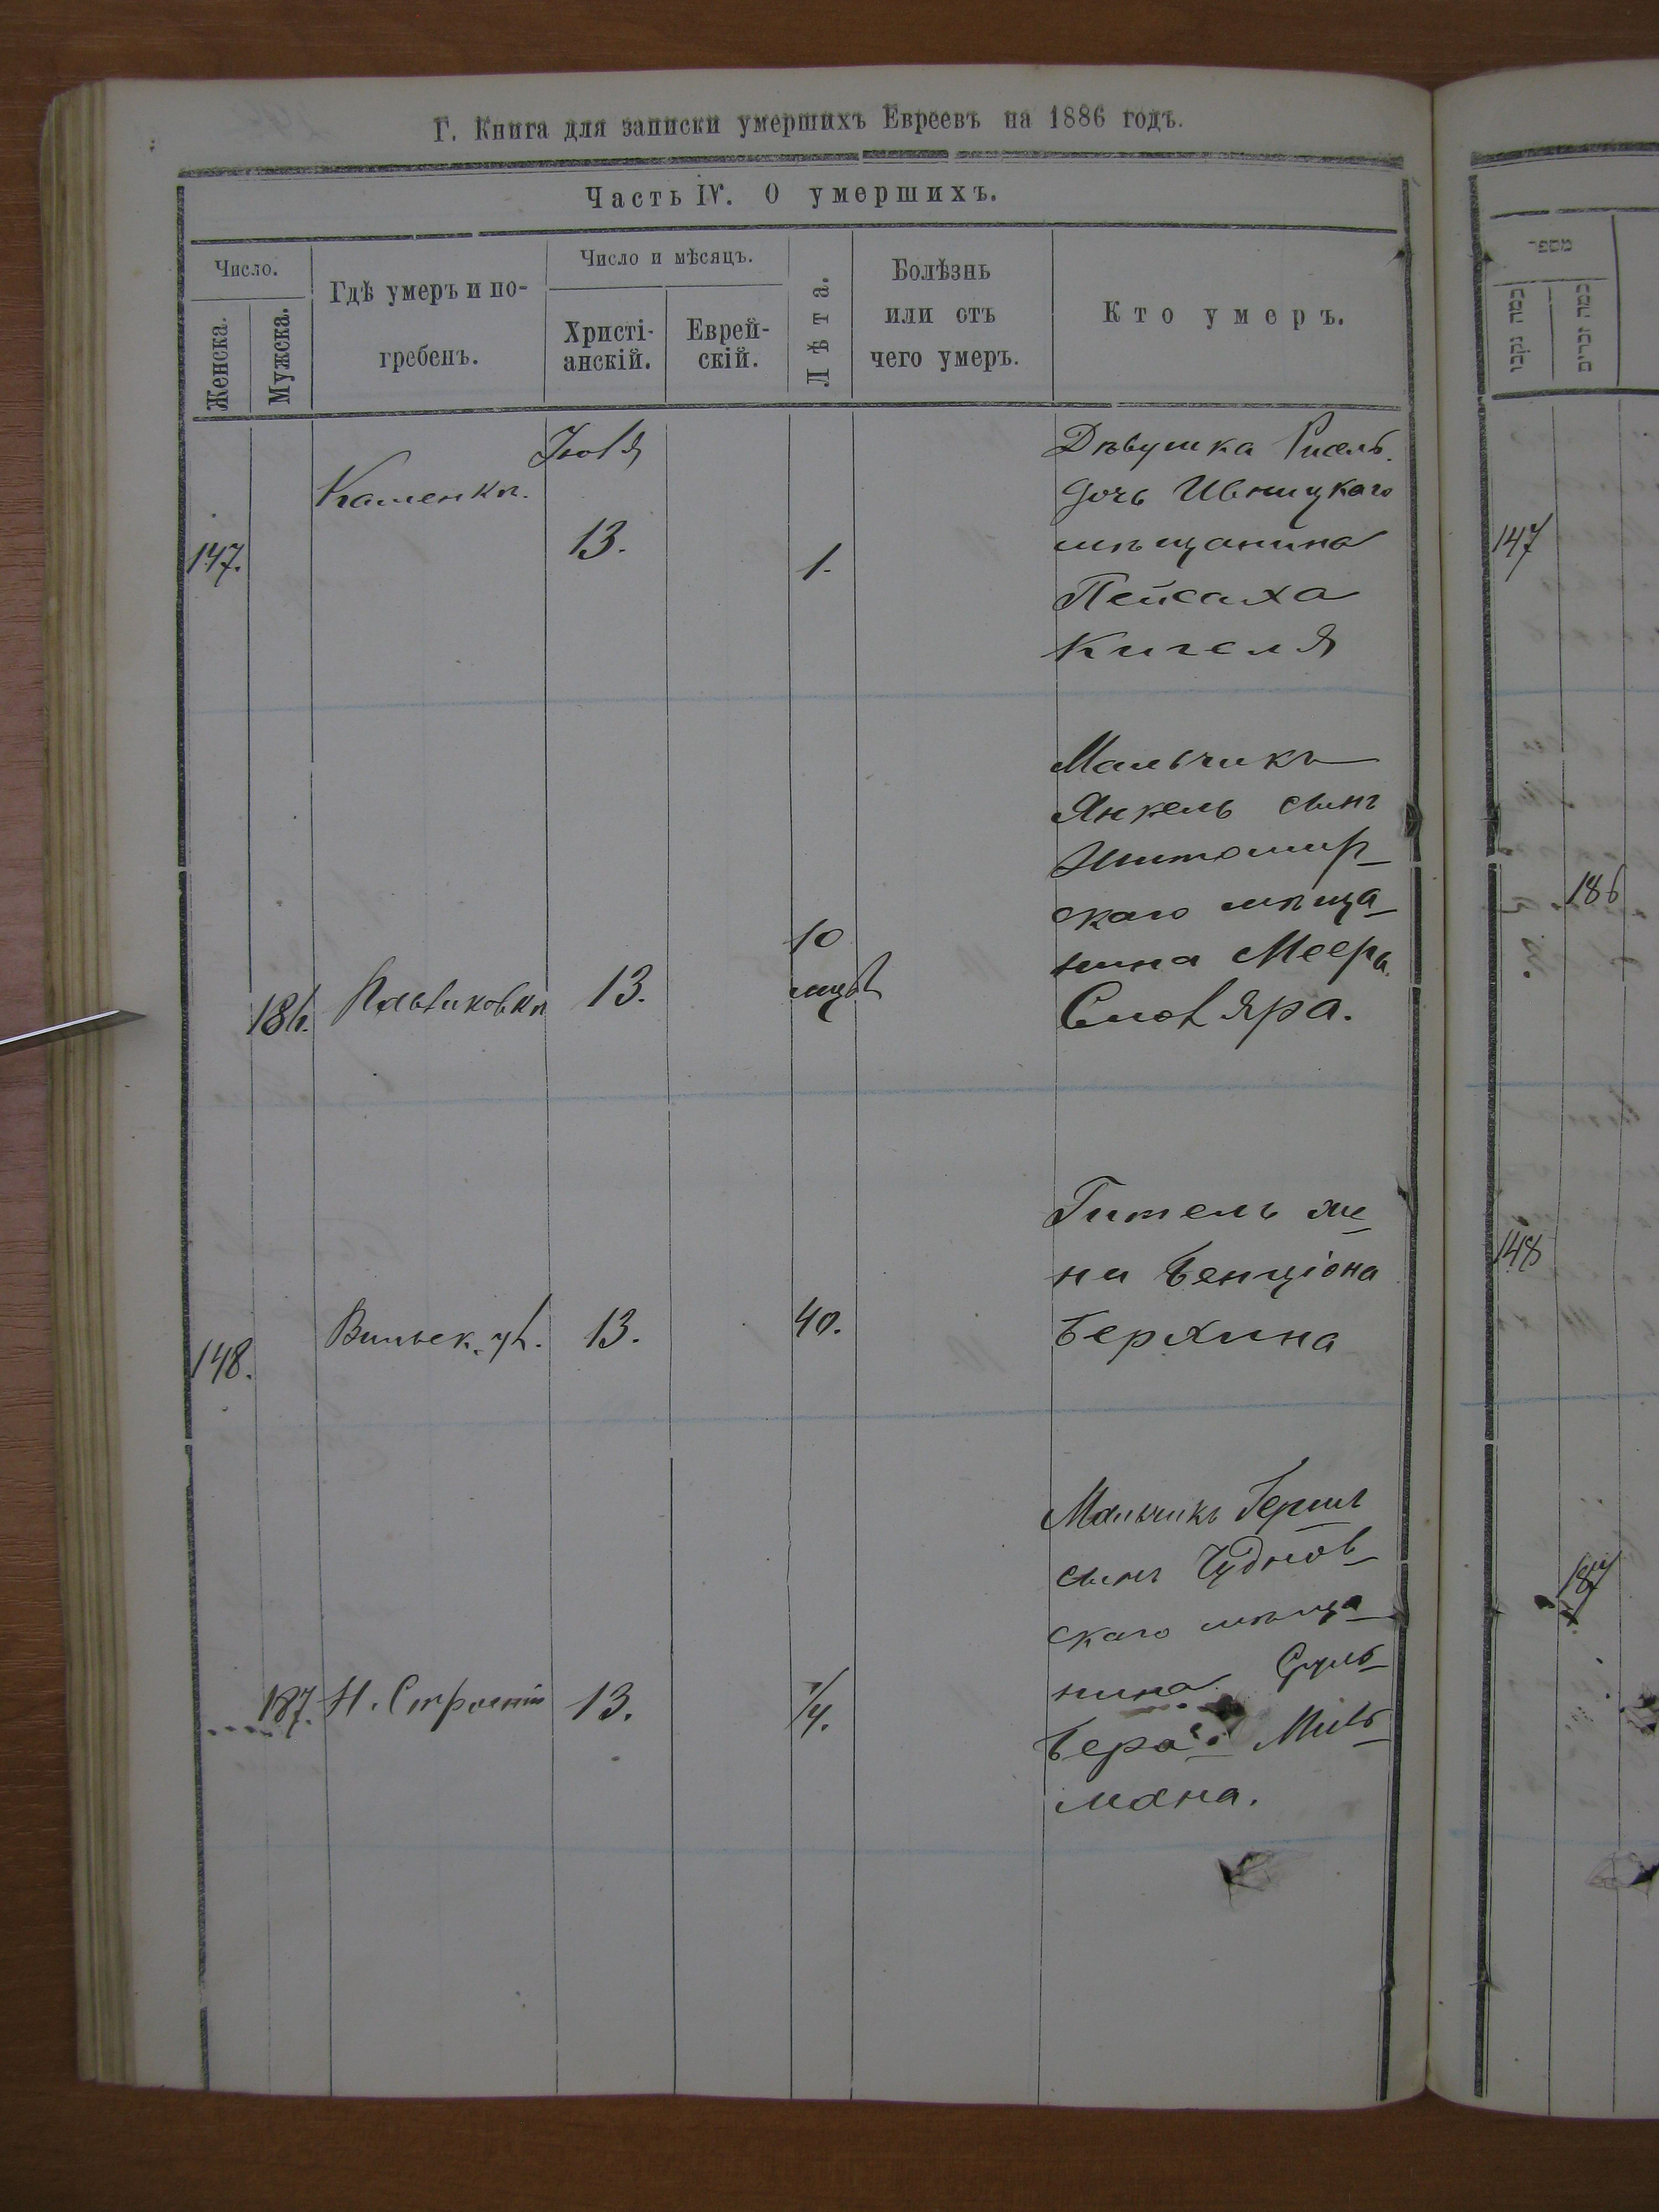 Г. Книга для записки умершихъ Евреевъ на 1886 годъ.
Часть IV. О умершихъ.
Число.
Женска.
Мужска.
Гдѣ умеръ и по-
гребенъ.
Число и мѣсяцъ.
Христі-
анскій.
Еврей-
скій.
Лѣта.
Болѣзнь
или отъ
чего умеръ.
Кто умеръ.
147.
Каменка.
Іюля
13.
1.
Дѣвушка Рисель
дочь Ивницкаго
мѣщанина
Пейсаха
Кигеля
186.
13.
10
мцѣв
Мальчикъ
Янкель сынъ
Житомир-
скаго мѣща-
нина Меера
Смоляра.
148.
Вильск. ул.
13.
40.
Гитель же-
на Бенціона
Берхина
187.
Н. Строенія
13.
1/4.
Мальчикъ Герш
сынъ Чуднов-
скаго мѣща-
нина Сруль-
Бера Миль-
мана.
מספר
147
186
148
187